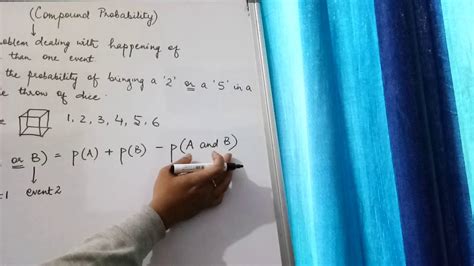 (Compound Probability)
roblem dealing with happening of
than one event
the probability of bringing a '2' or a '5' in a
throw of dice.
1, 2, 3, 4, 5, 6
or B) = p(A) + p(B) - p(A and B)
=1 event 2